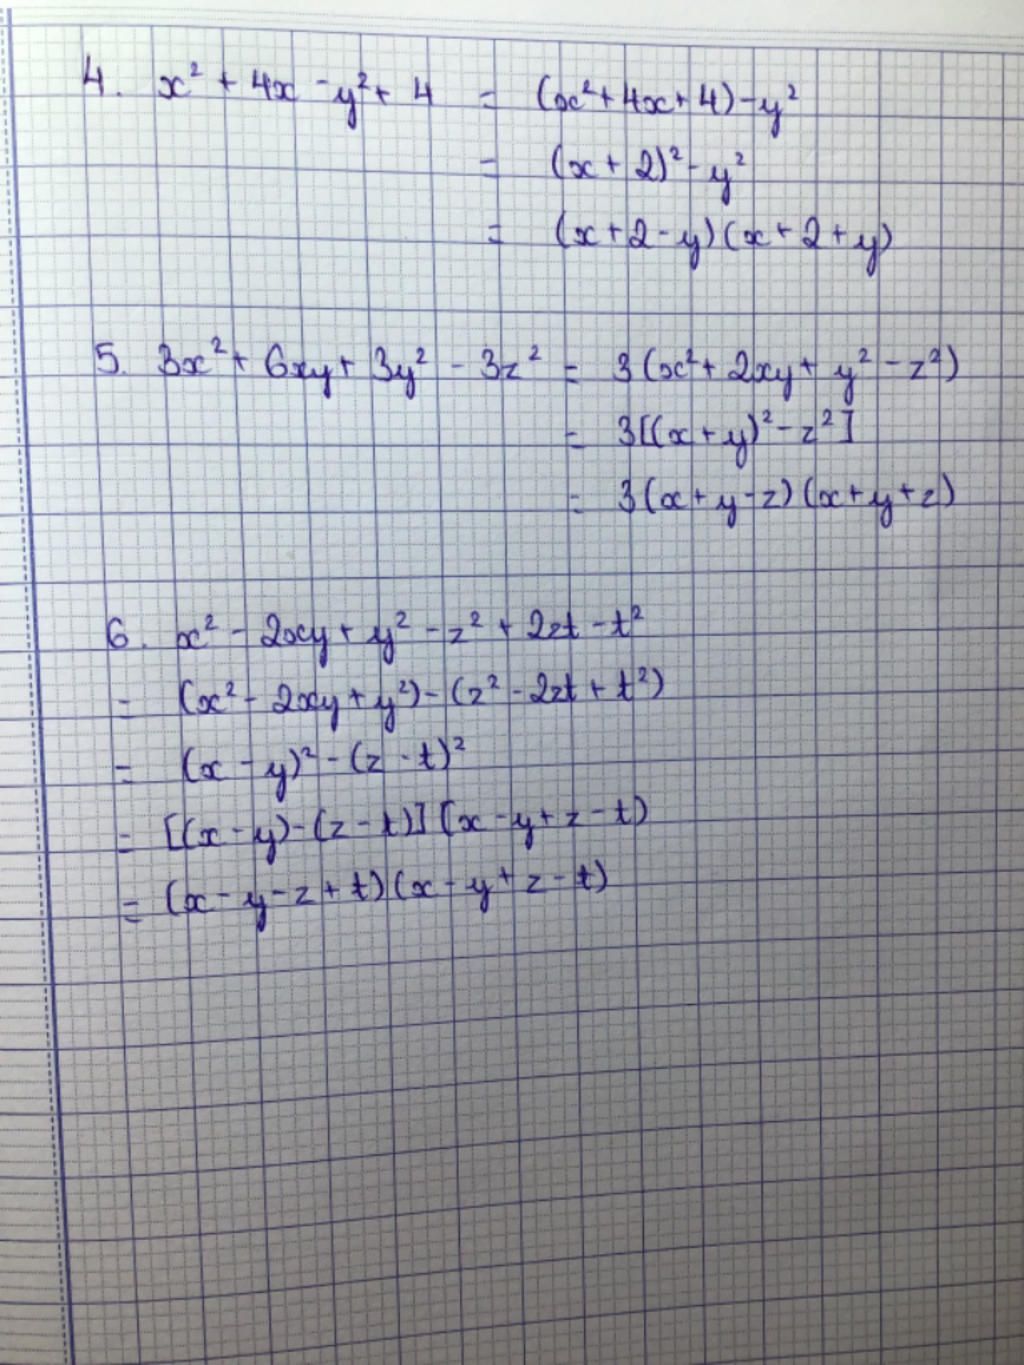 4. x² + 4x - y² + 4 = (x² + 4x + 4) - y²
= (x + 2)² - y²
= (x + 2 - y)(x + 2 + y)
5. 3x² + 6xy + 3y² - 3z² = 3(x² + 2xy + y² - z²)
= 3[(x + y)² - z²]
= 3(x + y - z)(x + y + z)
6. x² - 2xy + y² - z² + 2zt - t²
= (x² - 2xy + y²) - (z² - 2zt + t²)
= (x - y)² - (z - t)²
= [(x - y) - (z - t)](x - y + z - t)
= (x - y - z + t)(x - y + z - t)